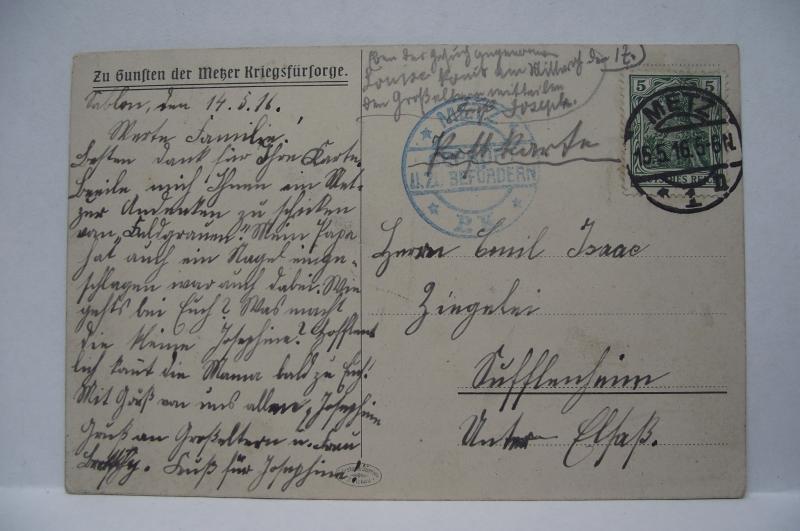 Zu Gunsten der Metzer Kriegsfürsorge.
Sablon, den 14.5.16.
Werte Familie!
Besten Dank für Ihre Karte.
beeile mich Ihnen ein Met-
zer Andenken zu schicken
von „Feldgrauen“. Mein Papa
hat auch ein Nagel einge-
schlagen war auch dabei. Wie
gehts bei Euch? Was macht
die kleine Josephine? Hoffent
lich kommt die Mama bald zu Euch!
Mit Gruß von uns allen, Josephine
Gruß an Großeltern u. Frau
Kuß für Josephine!
am Mittwoch den 17.
den Großeltern mitteilen
Joseph.
Postkarte
METZ
U.Z. BEFÖRDERN
5 5
DEUTSCHES REICH
METZ
15.5.16.5-6N.
* 1
Herrn Emil Isaac
Ziegelei
Sufflenheim
Unter Elsaß.